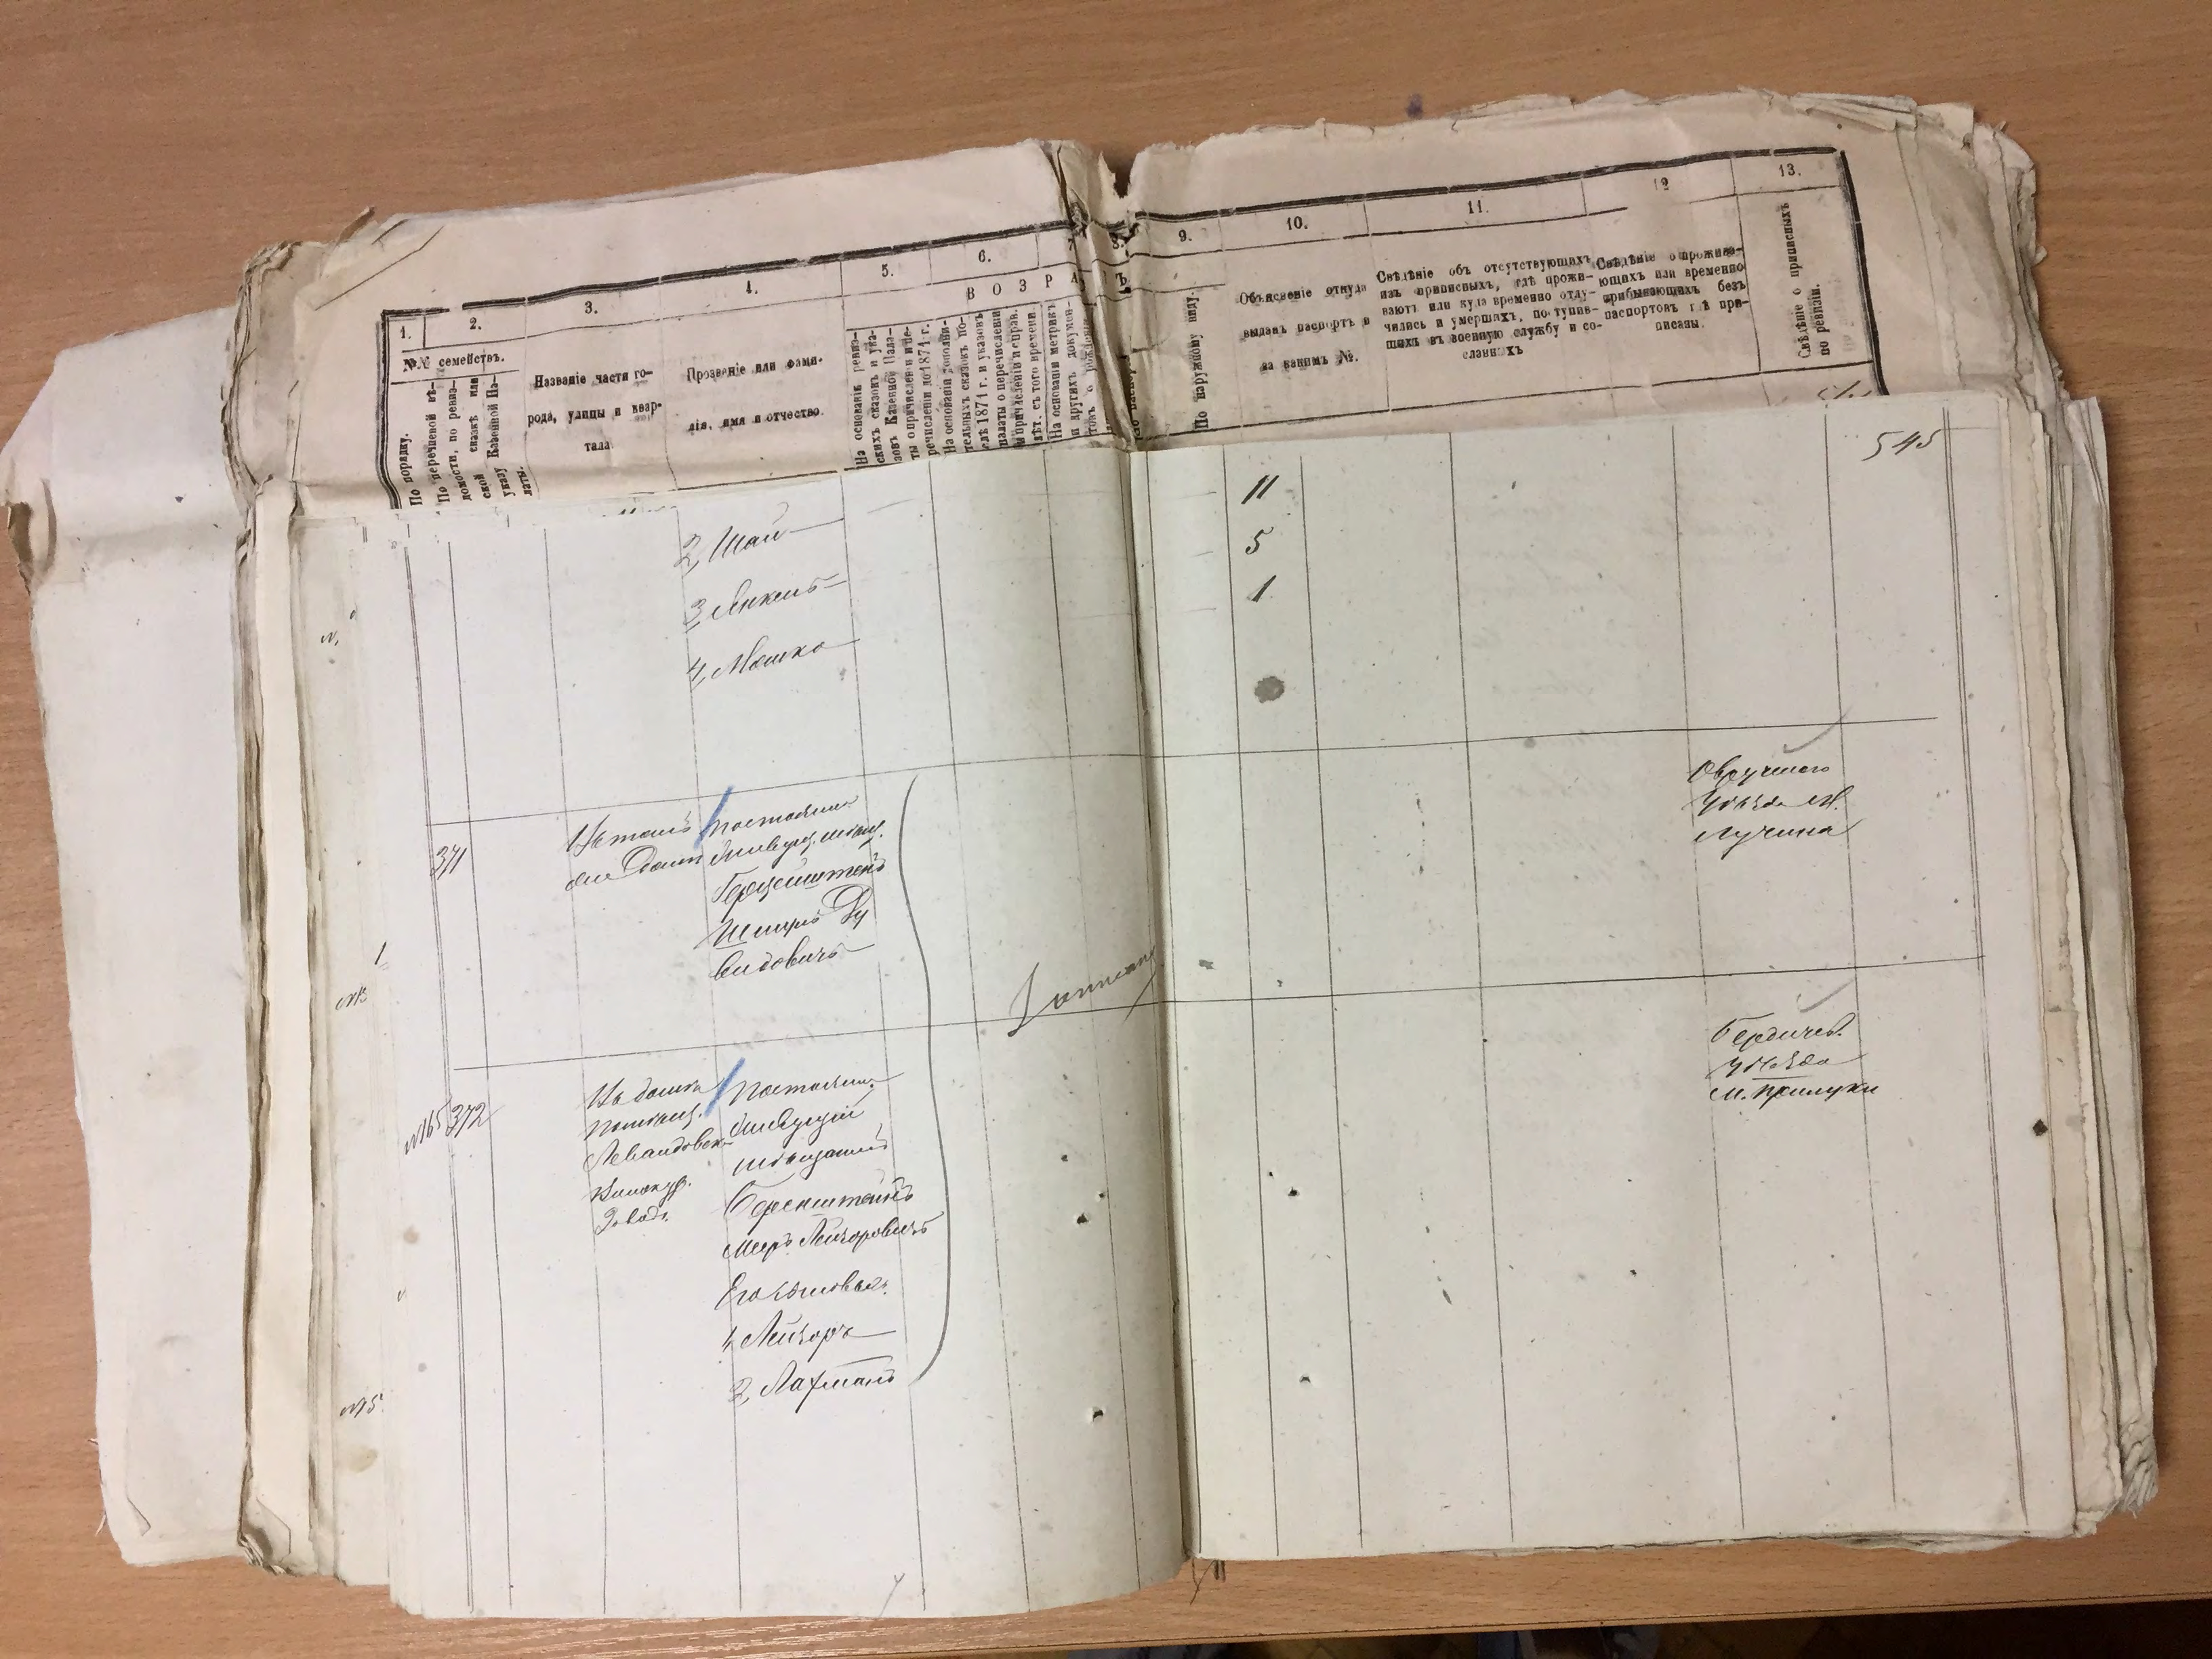 1.
2.
3.
4.
5.
6.
7
8.
9.
10.
11.
12
13.
№№ семействъ.
По порядку.
По перечневой вѣ-
домости, по ревиз-
ской сказкѣ или
указу Казенной Па-
латы.
Названіе части го-
рода, улицы и квар-
тала.
Прозваніе или фами-
лія, имя и отчество.
ВОЗРА
Ъ
На основаніи ревиз-
скихъ сказокъ и ука-
зовъ Казенной Пала-
ты о причисленіи и пе-
речисленіи до 1874 г.
На основаніи дополни-
тельныхъ сказокъ по-
слѣ 1874 г. и указовъ
палаты о перечисленіи
и причисленіи и справ.
лѣт. съ того времени.
На основаніи метрикъ
и другихъ докумен-
По наружному виду.
Объясненіе откуда
выданъ паспортъ и
за какимъ №.
Свѣдѣніе объ отсутствующихъ
изъ приписныхъ, гдѣ прожи-
ваютъ или куда временно отлу-
чились и умершихъ, поступив-
шихъ въ военную службу и со-
сланныхъ
Свѣдѣніе о прожива-
ющихъ или временно
прибывающихъ безъ
паспортовъ гдѣ при-
писаны.
Свѣдѣніе о приписныхъ
по ревизіи.
545
2, Шая
11
3, Янкель
5
4, Мошко
1
371
домѣ
Постоянно
живущ. мѣщ.
Герценштейнъ
Шмуль Ду
видовичъ
Овручскаго
Уѣзда М.
Лучина
№165
372
Въ домѣ
помѣщ.
Левандовск
Винокур.
Завод.
Постоянно
живущій
мѣщанинъ
Беренштейнъ
Мееръ Лейзоровичъ
Его сыновья.
1, Лейзоръ
2, Лахманъ
Бердичев.
уѣзда
м. Прилуки